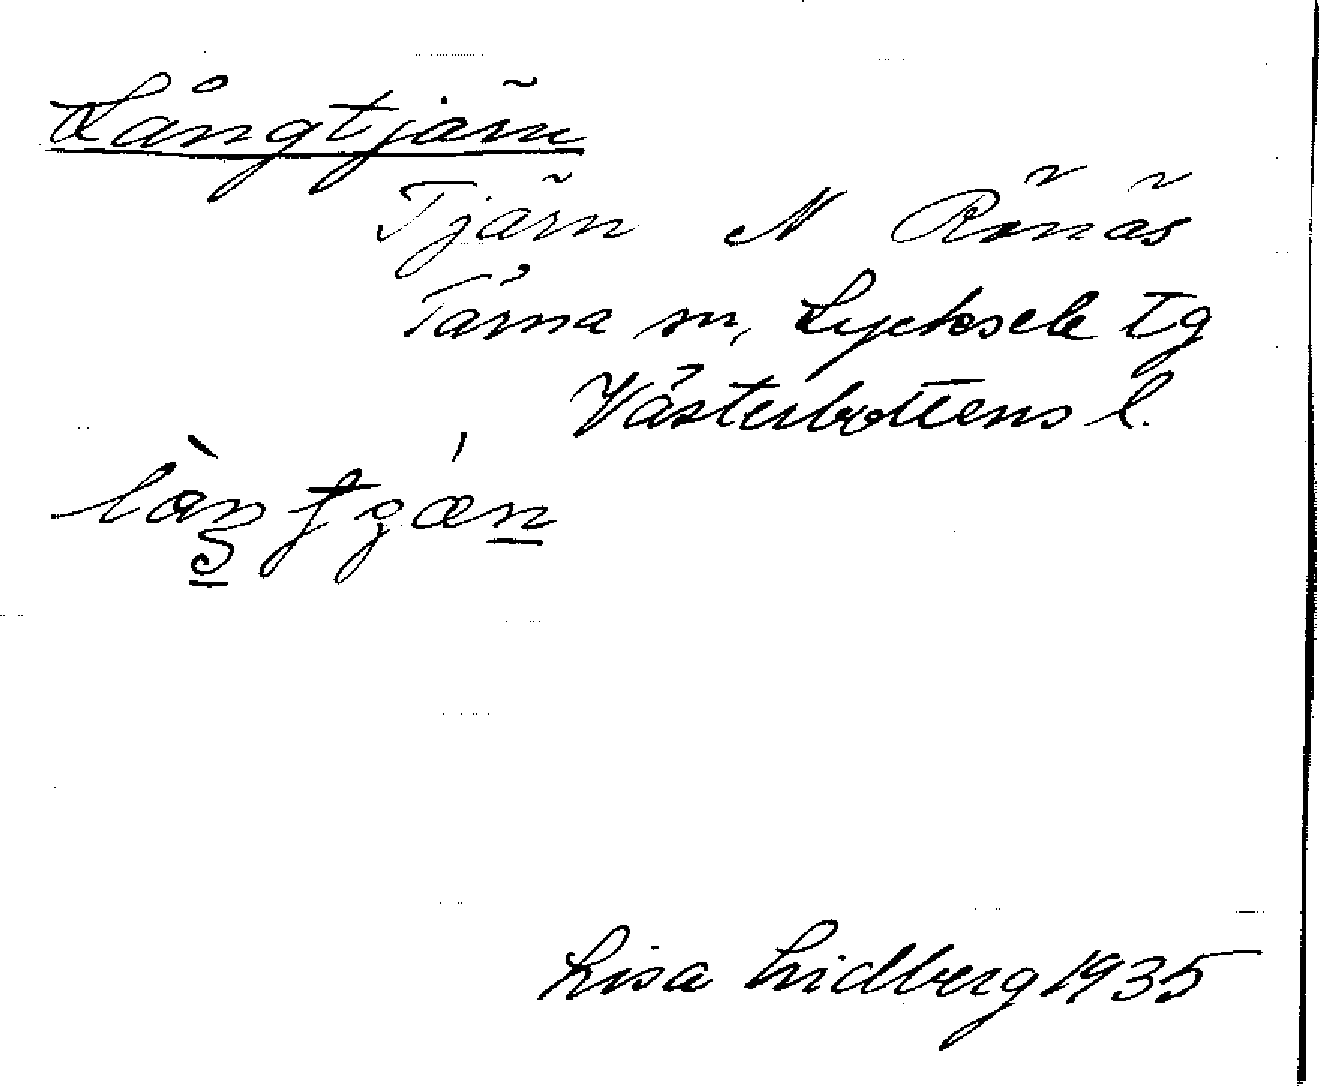 Långtjärn
Tjärn N Rönäs
Tärna sn, Lycksele tg
Västerbottens l.
Lisa Lidberg 1935